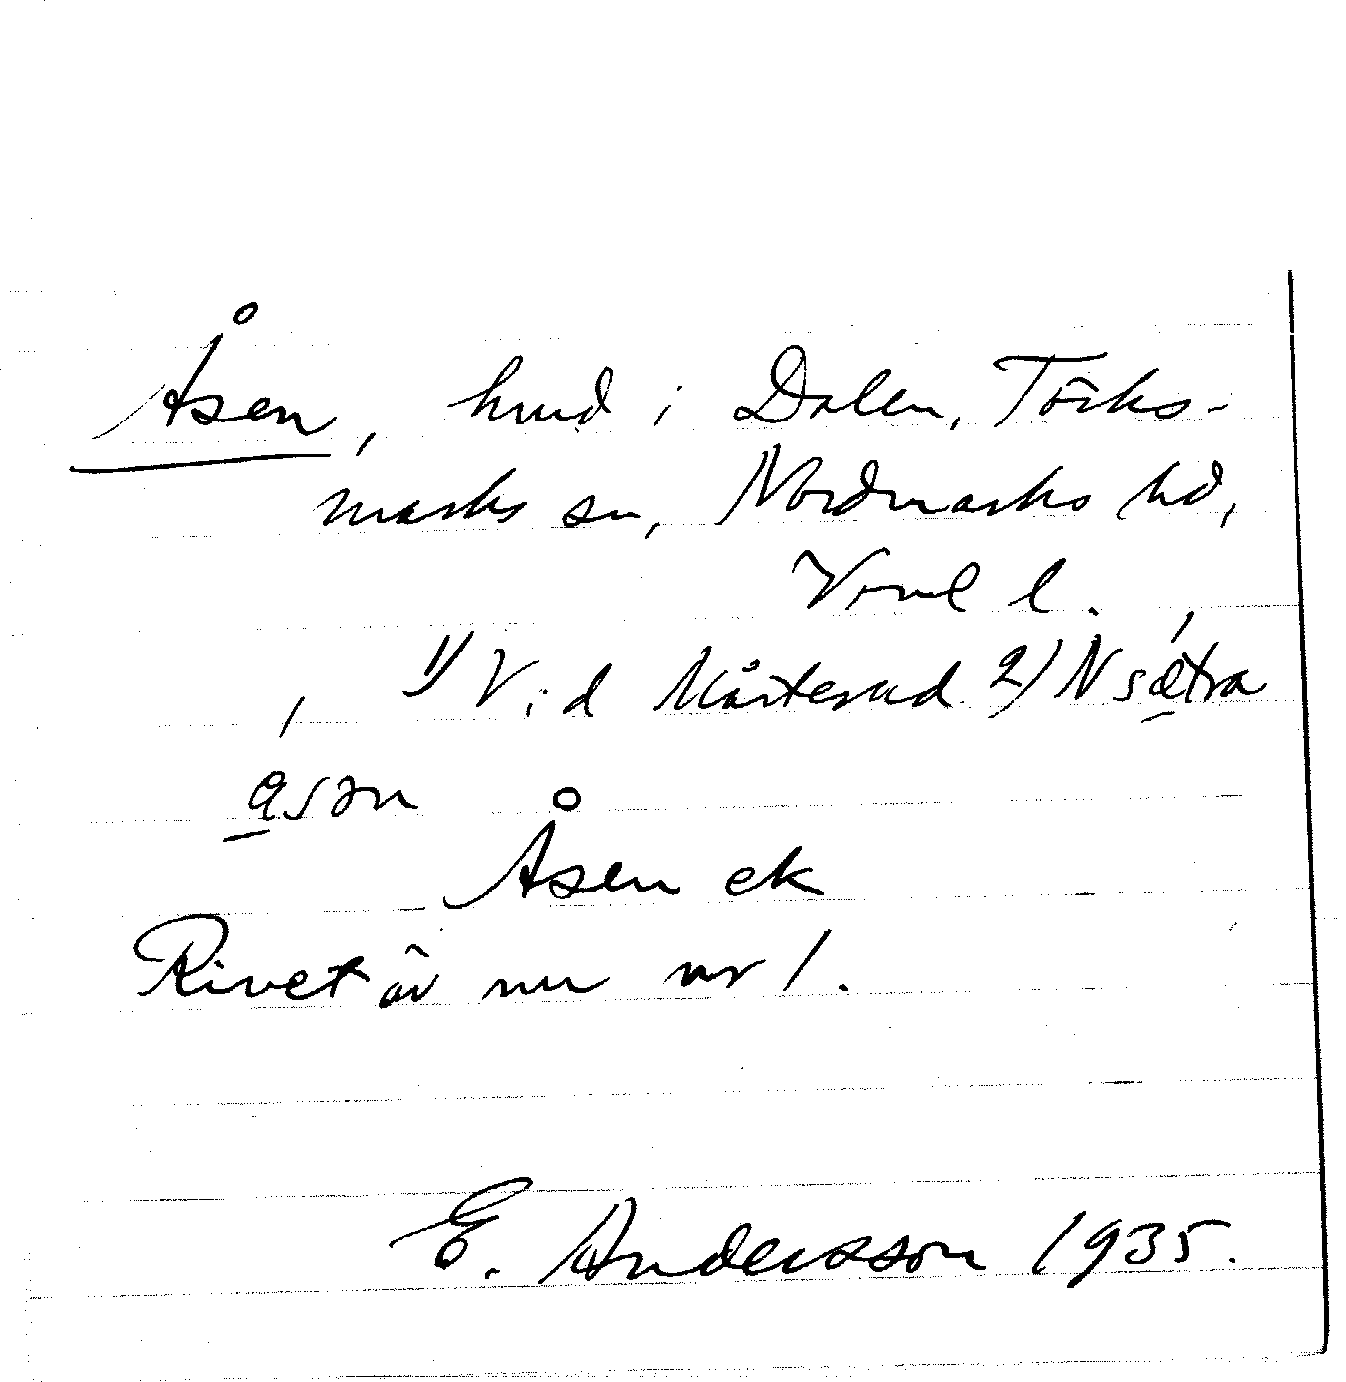 Åsen, hmd i Dalen, Töcks-
marks sn, Nordmarks hd,
Vrml l.
1) Vid Mårterud 2) N sætra
åsən
Åsen ek
Rivet är nu nr 1.
E. Andersson 1935.